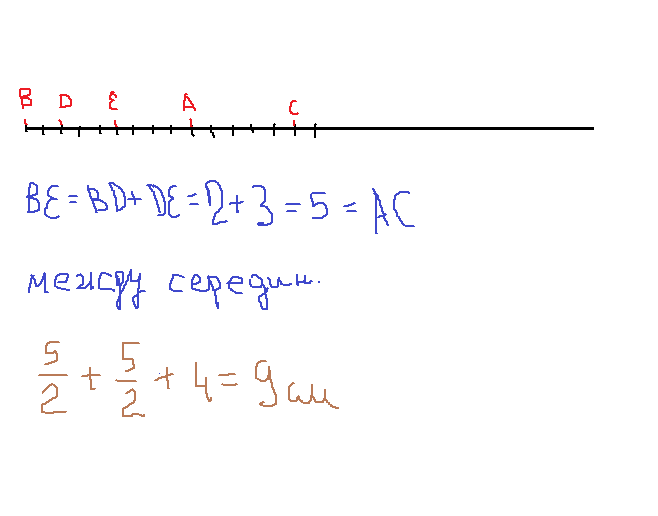 B D E A C
BE = BD + DE = 2 + 3 = 5 = AC
между середин.
5/2 + 5/2 + 4 = 9 см